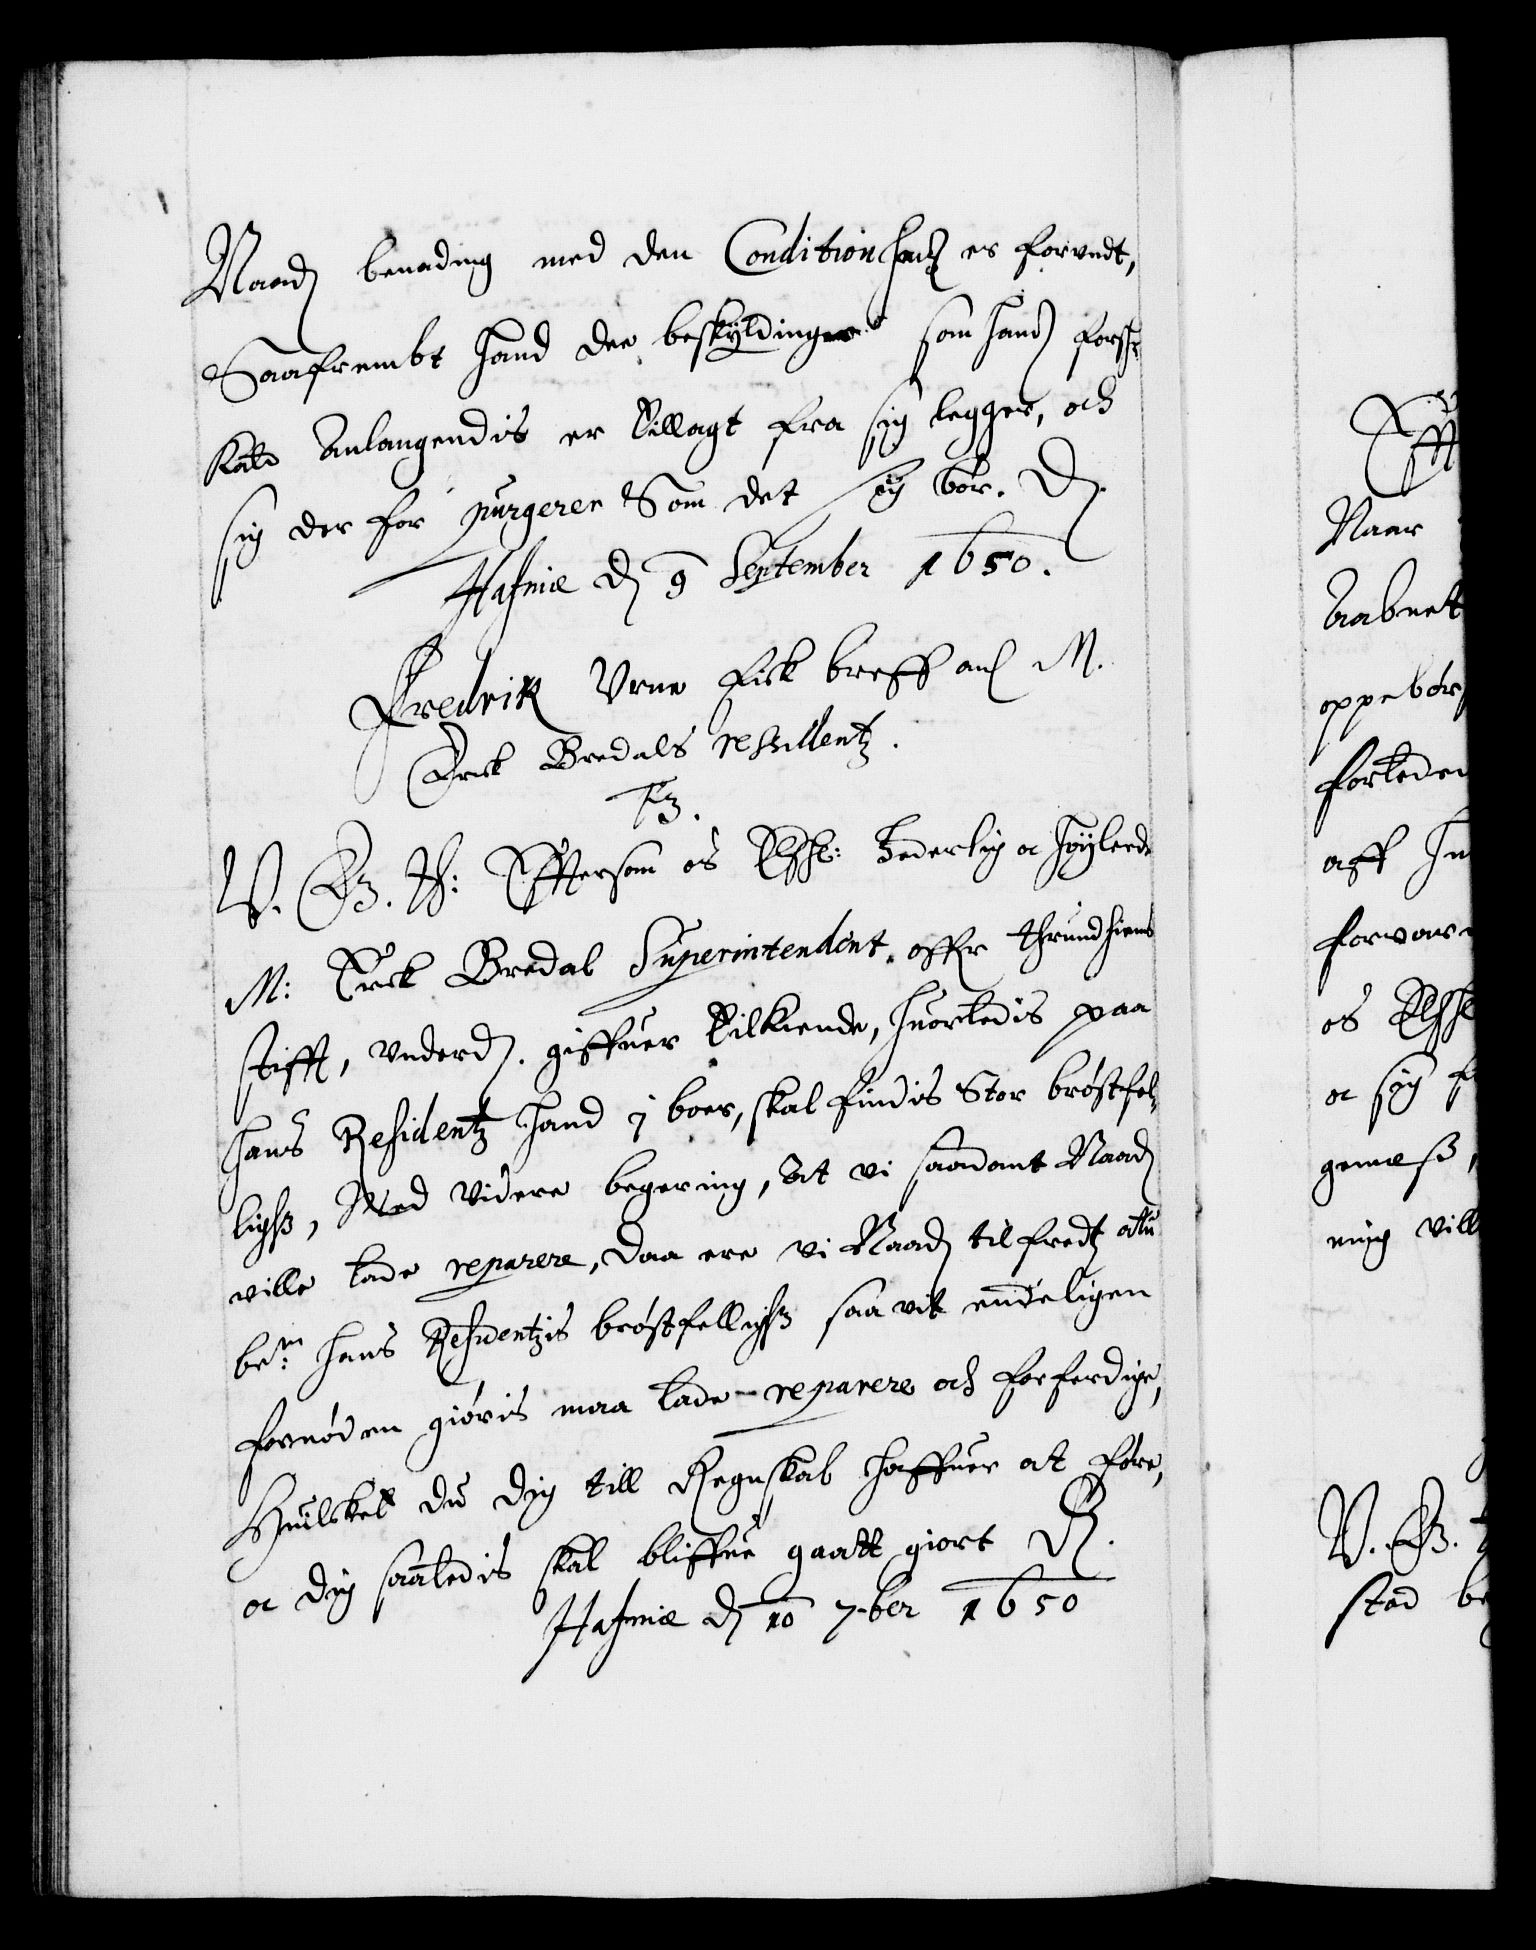 Naad. benading med den Condition hand er forundt,
Saafrembt hand dee beskyldinger som hand forsch:
Kald Anlangendis er tillagt fra sig legger, och
sig der for purgerer Som det sig bör. D.
Hafniæ d. 9 September 1650.
Fredrik Vrne fick breff anl M.
Erick Bredals residentz.
F3.
V. G. T: Efftersom os Elshl: hederlig oc höylerde
M: Erick Bredal Superintendent offr Thrundhiems
stifft, underd. giffuer tilkiende, huorledis paa
hans Residentz hand j boer, skal findis Stor bröstfel-
lighs, Med videre begering, At vi saadant Naad.
ville lade reparere, Daa ere vi Naad. tilfredtz attu
bem: hans Residentzis bröstfellighs saavit endeligen
fornöden giöris maa lade reparere och forferdige,
Huilcket du dig till Regnskab haffuer at före,
oc dig saaledis skal bliffue gaatt giort D.
Hafniæ d. 10 7-ber 1650
Naar
Aabnet
oppebör
forleden
aff
os Elshl
oc sig
gemæss,
ning vill
V. G. T
sted be